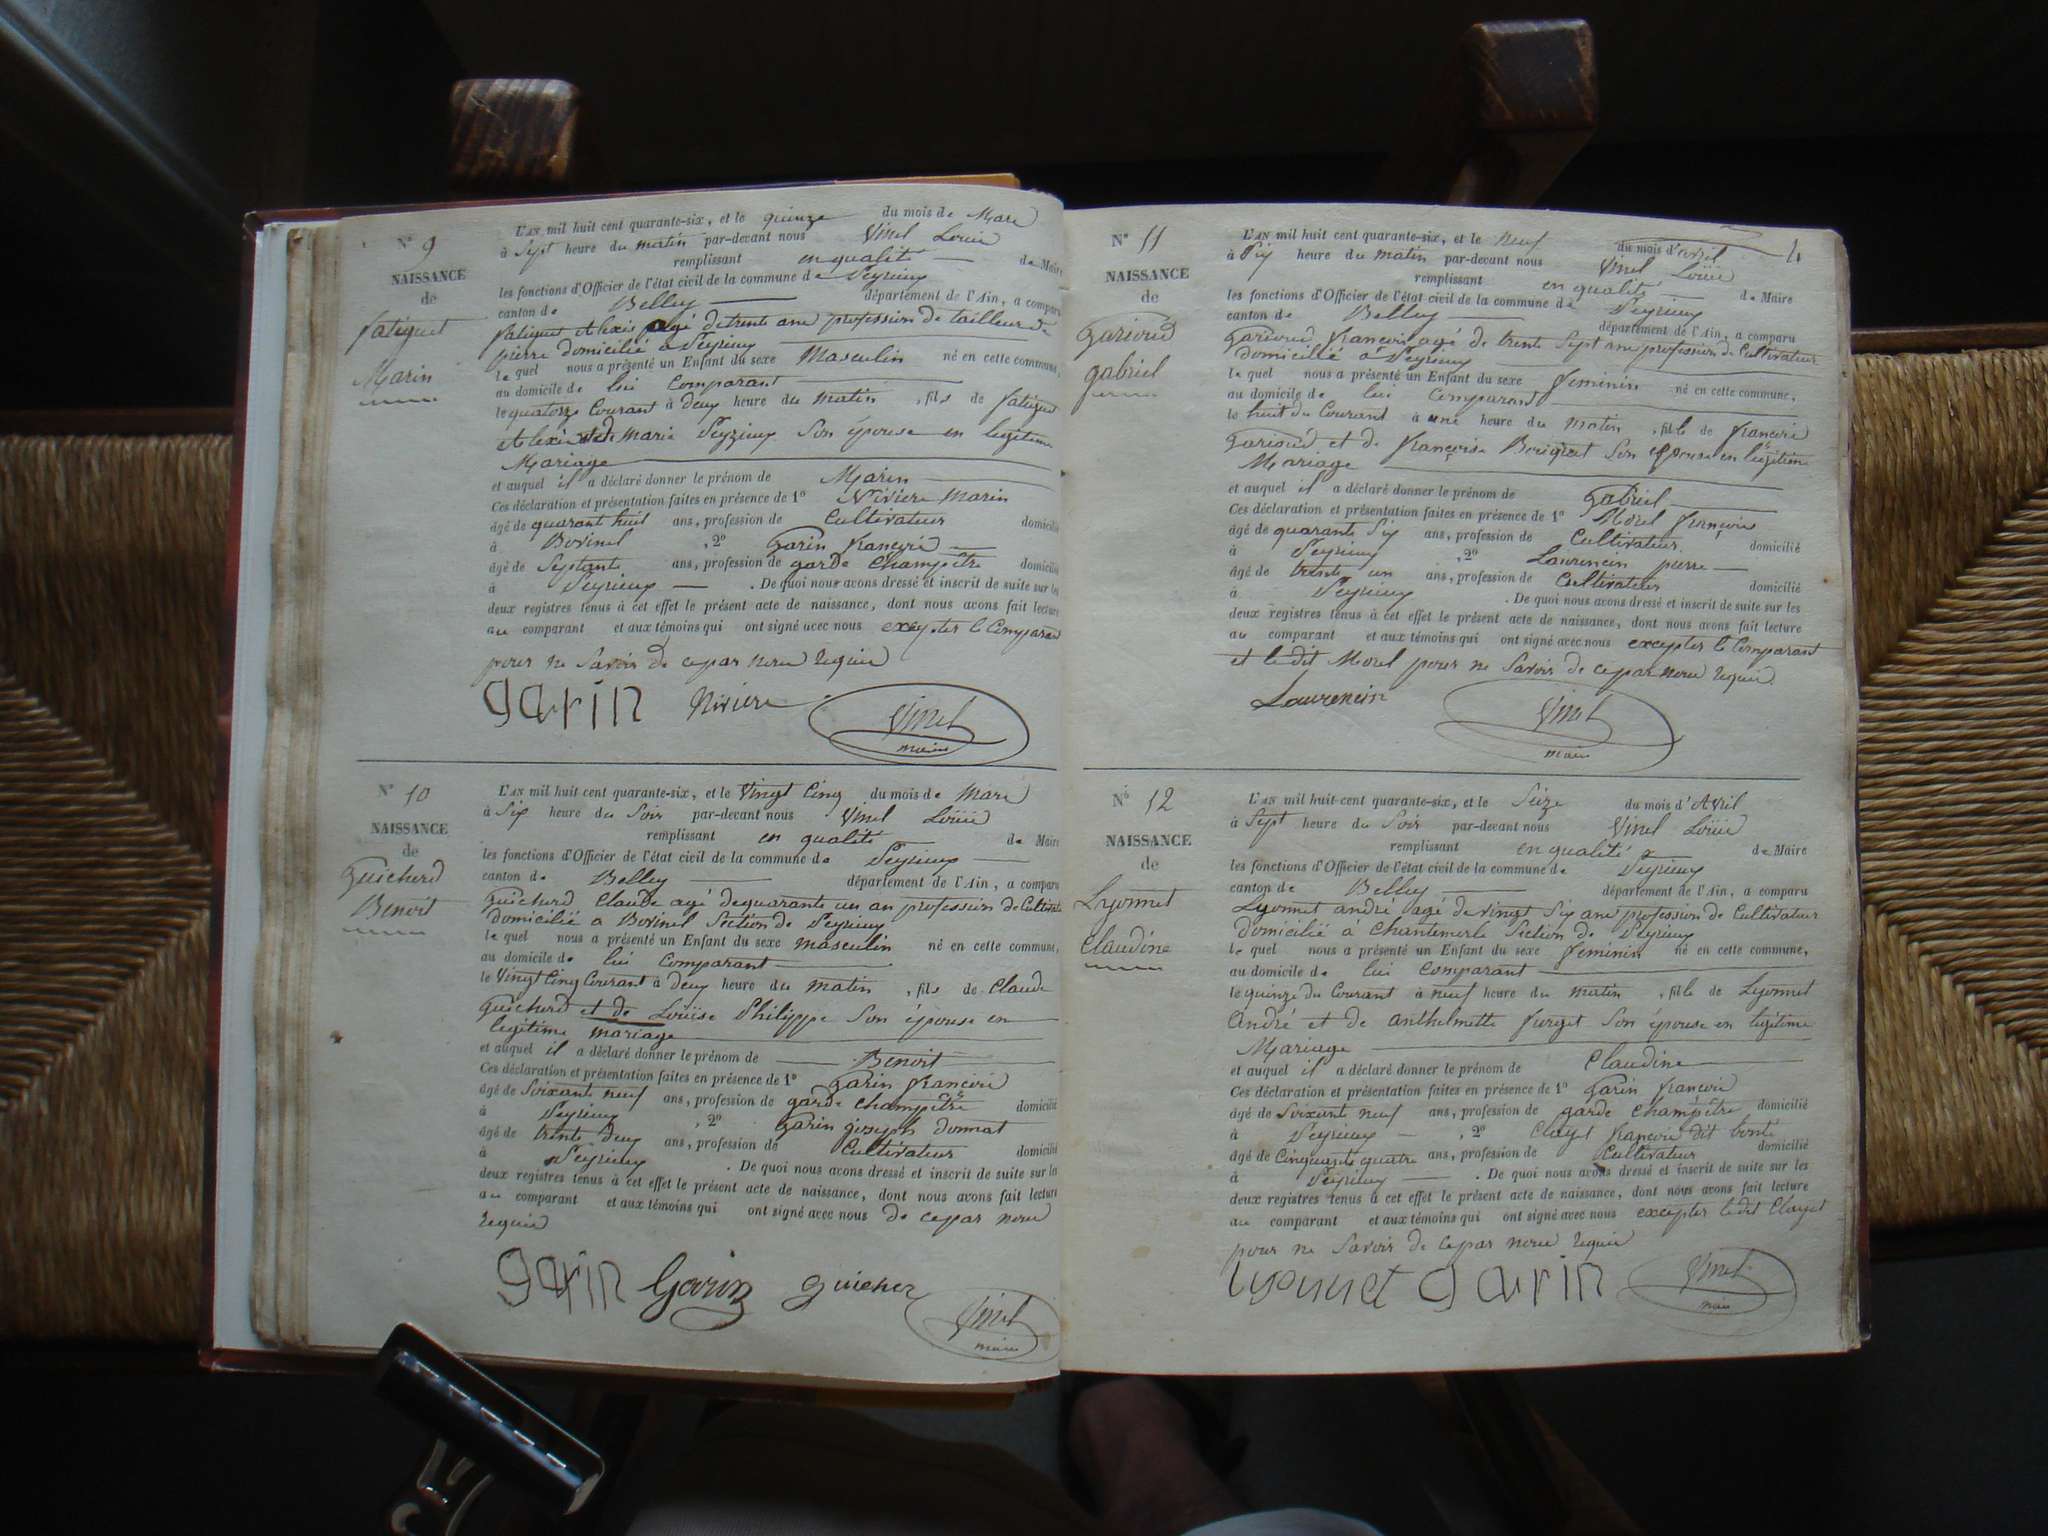 N° 9
NAISSANCE
de
fatiguet
Marin
L'AN mil huit cent quarante-six, et le quinze du mois de Mars
à Sept heure du matin par-devant nous Vinel Loüis
remplissant en qualité de Maire
les fonctions d'Officier de l'état civil de la commune de Peyrieux
canton de Belley département de l'Ain, a comparu
fatiguet Alexis agé de trente ans profession de tailleur de
pierre domicilié a Peyrieux
le quel nous a présenté un Enfant du sexe Masculin né en cette commune,
au domicile de lui Comparant
le quatorze Courant à deux heure du matin, fils de fatiguet
Alexis et de marie Peyzieux Son épouse en legitime
Mariage
et auquel il a déclaré donner le prénom de Marin
Ces déclaration et présentation faites en présence de 1° Niviere Marin
âgé de quarant huit ans, profession de Cultivateur domicilié
à Bovinel, 2° Garin françois
âgé de Septante ans, profession de garde Champêtre domicilié
à Peyrieux. De quoi nous avons dressé et inscrit de suite sur les
deux registres tenus à cet effet le présent acte de naissance, dont nous avons fait lecture
au comparant et aux témoins qui ont signé avec nous excepter le Comparant
pour ne Savoir de ce par nous requis
garin Niviere Vinel
maire
N° 10
NAISSANCE
de
Guicherd
Benoit
L'AN mil huit cent quarante-six, et le Vingt Cinq du mois de Mars
à Six heure du Soir par-devant nous Vinel Loüis
remplissant en qualité de Maire
les fonctions d'Officier de l'état civil de la commune de Peyrieux
canton de Belley département de l'Ain, a comparu
Guicherd Claude agé de quarante un an profession de Cultivateur
domicilié a Bovinel Section de Peyrieux
le quel nous a présenté un Enfant du sexe masculin né en cette commune,
au domicile de lui Comparant
le Vingt Cinq Courant à deux heure du matin, fils de Claude
Guicherd et de Loüise Philippe Son épouse en
legitime mariage
et auquel il a déclaré donner le prénom de Benoit
Ces déclaration et présentation faites en présence de 1° Garin françois
âgé de Soixante neuf ans, profession de garde Champêtre domicilié
à Peyrieux, 2° Garin joseph donnat
âgé de trente deux ans, profession de Cultivateur domicilié
à Peyrieux. De quoi nous avons dressé et inscrit de suite sur les
deux registres tenus à cet effet le présent acte de naissance, dont nous avons fait lecture
au comparant et aux témoins qui ont signé avec nous de ce par nous
requis
garin Garin guicher Vinel
maire
4
N° 11
NAISSANCE
de
Garioud
gabriel
L'AN mil huit cent quarante-six, et le neuf du mois d'avril
à Six heure du matin par-devant nous Vinel Loüis
remplissant en qualité de Maire
les fonctions d'Officier de l'état civil de la commune de Peyrieux
canton de Belley département de l'Ain, a comparu
Garioud françois agé de trente Sept ans profession de Cultivateur
domicilié à Peyrieux
le quel nous a présenté un Enfant du sexe feminin né en cette commune,
au domicile de lui Comparant
le huit du Courant à une heure du matin, fille de françois
Garioud et de françoise Bouquet Son Epouse en legitime
Mariage
et auquel il a déclaré donner le prénom de Gabriel
Ces déclaration et présentation faites en présence de 1° Morel françois
âgé de quarante Six ans, profession de Cultivateur domicilié
à Peyrieux, 2° Laurencin pierre
âgé de trente un ans, profession de Cultivateur domicilié
à Peyrieux. De quoi nous avons dressé et inscrit de suite sur les
deux registres tenus à cet effet le présent acte de naissance, dont nous avons fait lecture
au comparant et aux témoins qui ont signé avec nous excepter le Comparant
et le dit Morel pour ne Savoir de ce par nous requis
Laurencin Vinel
maire
N° 12
NAISSANCE
de
Lyonnet
Claudine
L'AN mil huit cent quarante-six, et le Seize du mois d'Avril
à Sept heure du Soir par-devant nous Vinel Loüis
remplissant en qualité de Maire
les fonctions d'Officier de l'état civil de la commune de Peyrieux
canton de Belley département de l'Ain, a comparu
Lyonnet andré agé de vingt Six ans profession de Cultivateur
domicilié a Chantemerle Section de Peyrieux
le quel nous a présenté un Enfant du sexe feminin né en cette commune,
au domicile de lui Comparant
le quinze du Courant à neuf heure du matin, fille de Lyonnet
André et de anthelmette furget Son épouse en legitime
Mariage
et auquel il a déclaré donner le prénom de Claudine
Ces déclaration et présentation faites en présence de 1° Garin françois
âgé de Soixante neuf ans, profession de garde Champêtre domicilié
à Peyrieux, 2° Clayet françois dit
âgé de Cinquante quatre ans, profession de Cultivateur domicilié
à Peyrieux. De quoi nous avons dressé et inscrit de suite sur les
deux registres tenus à cet effet le présent acte de naissance, dont nous avons fait lecture
au comparant et aux témoins qui ont signé avec nous excepter le dit Clayet
pour ne Savoir de ce par nous requis
Lyonnet garin Vinel
maire